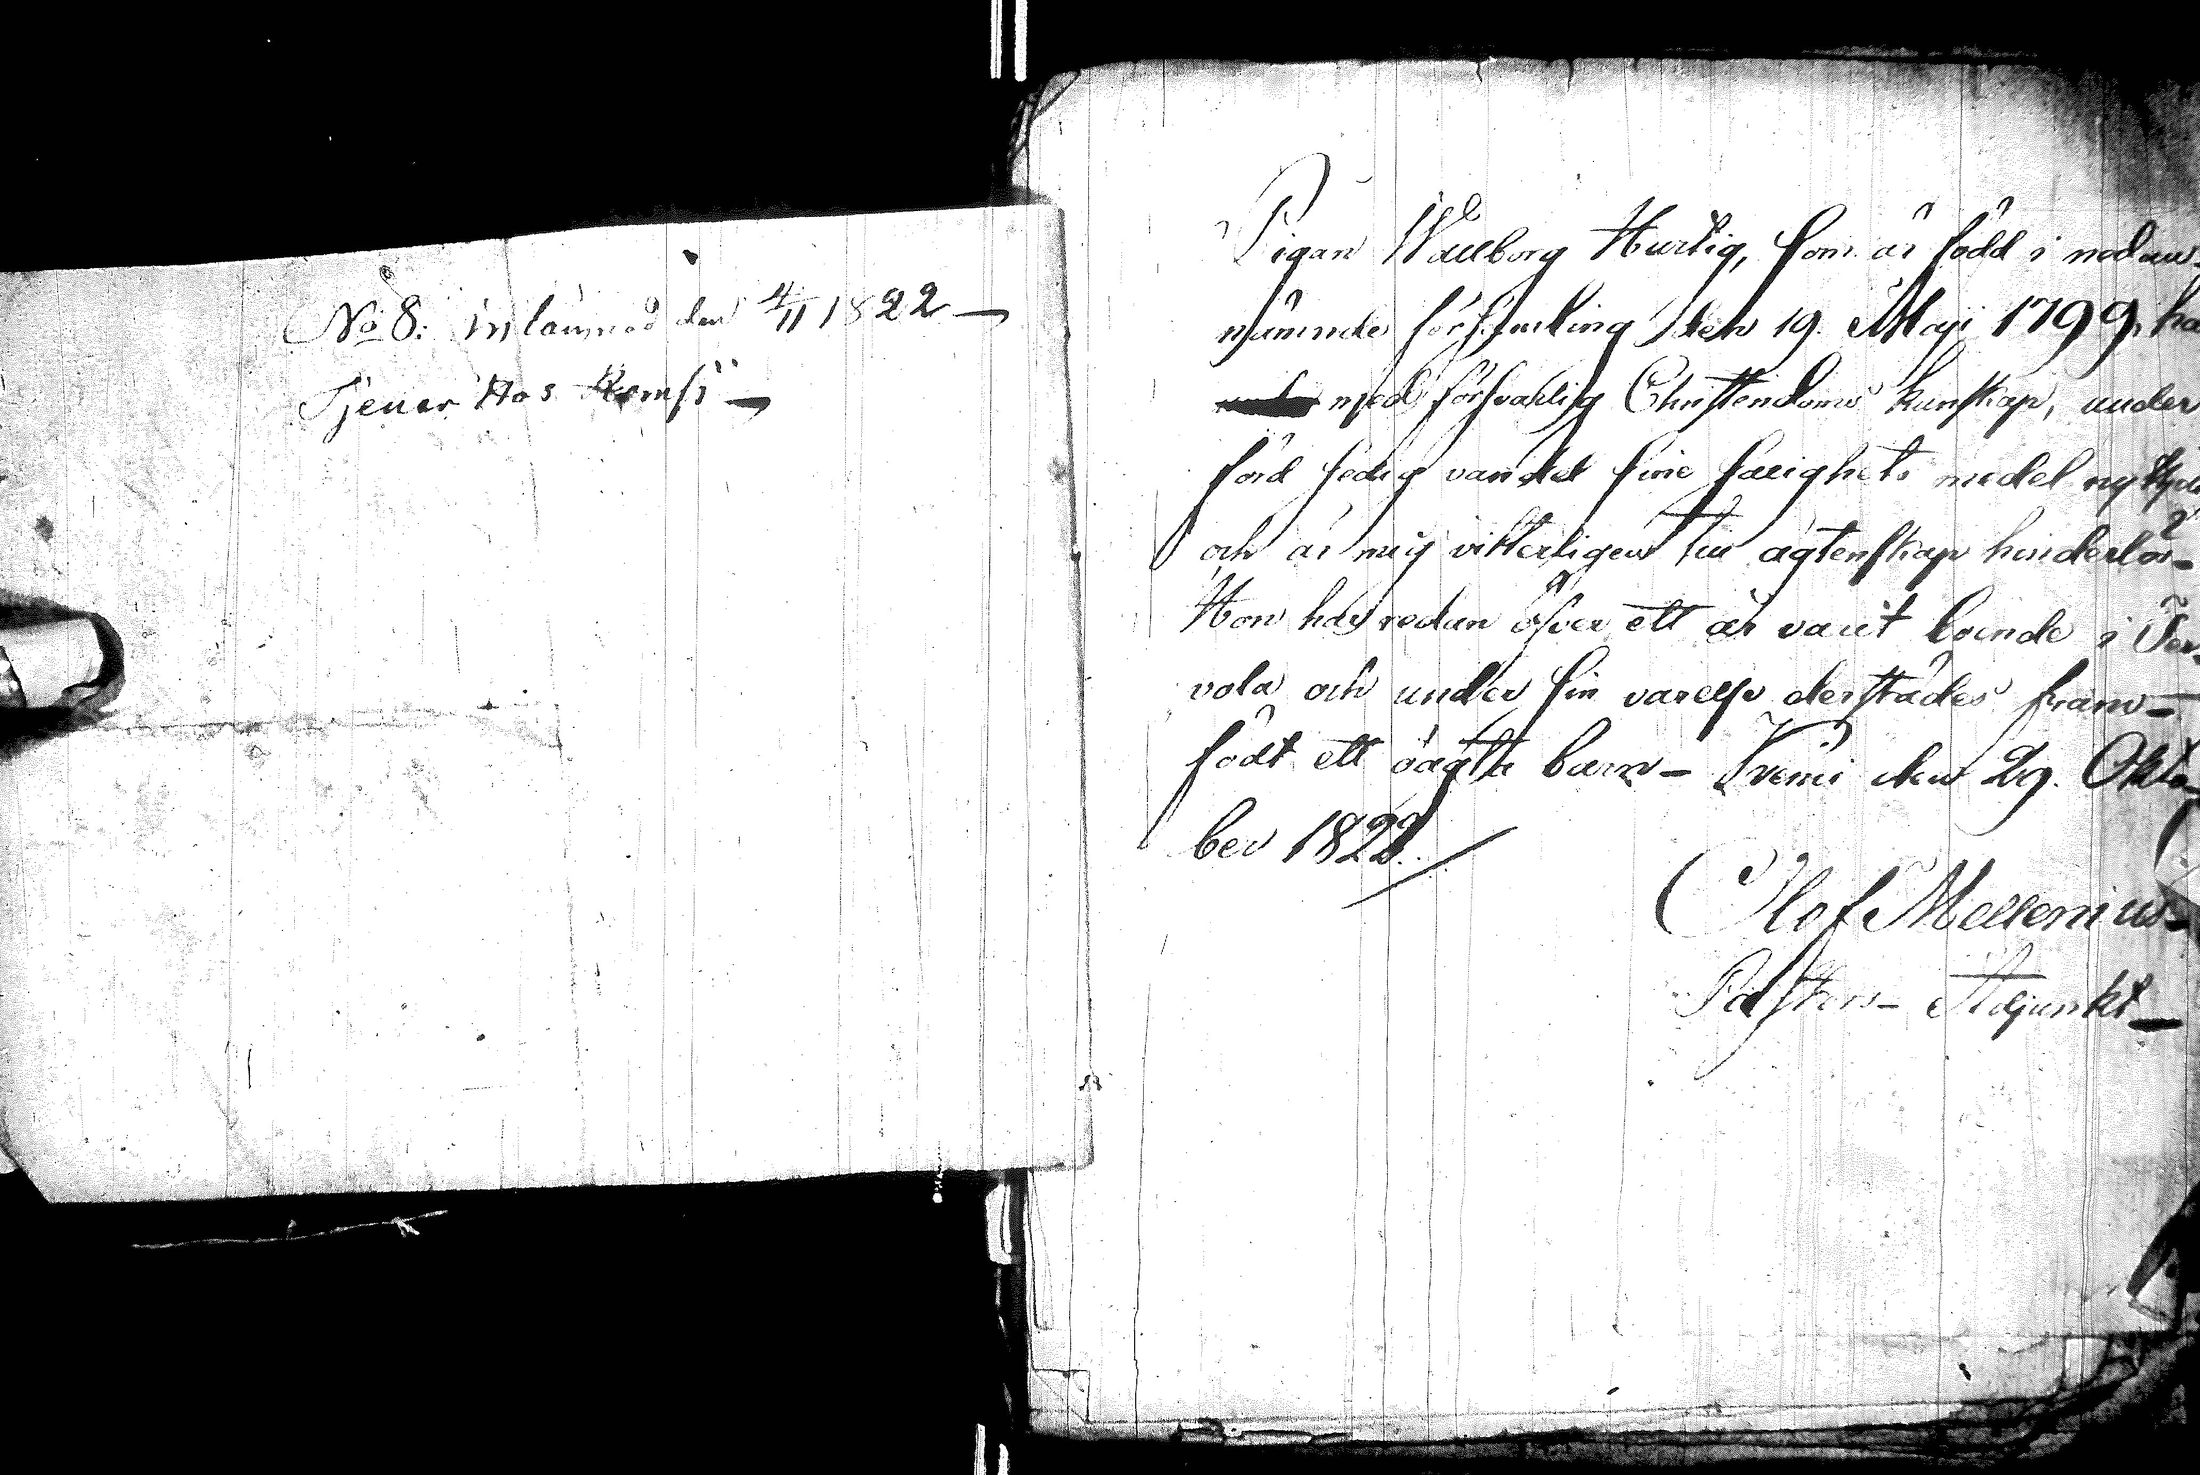 No 8: inlämnad den 4/11 1822 —
Tjenar Hos Remsi —
Pigan Wallborg Hurtig, som är född i nedan-
nämnde församling den 19. Maji 1799, ha
med försvarlig Christendoms kunskap, under
förd sedig vandel sine salighets medel nyttja
och är mig vitterligen till ägtenskap hinderlös-
Hon har redan öfver ett år varit boende i Ter-
vola och under sin varelse derstädes fram-
födt ett oägta barn – Kemi den 29. Okto-
ber 1822.
Olof Mellenius-
Pastors- Adjunkt —